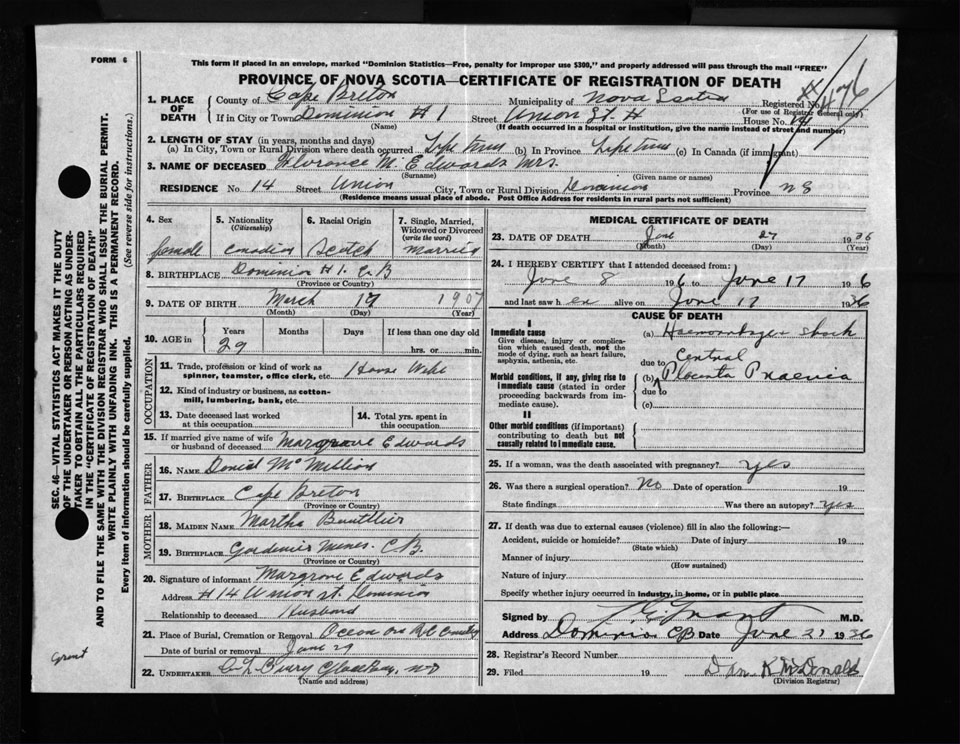 FORM 6
This form if placed in an envelope, marked "Dominion Statistics—Free, penalty for improper use $300," and properly addressed will pass through the mail "FREE"
PROVINCE OF NOVA SCOTIA—CERTIFICATE OF REGISTRATION OF DEATH
1. PLACE OF DEATH
County of Cape Breton Municipality of Nova Scotia Registered No. 476
(For use of Registrar General only)
If in City or Town Dominion #1 Street Union St. House No. 14
(Name) (If death occurred in a hospital or institution, give the name instead of street and number)
2. LENGTH OF STAY (in years, months and days)
(a) In City, Town or Rural Division where death occurred Life time (b) In Province Life time (c) In Canada (if immigrant)
3. NAME OF DECEASED Florance M. Edwards Mrs.
(Surname) (Given name or names)
RESIDENCE No. 14 Street Union City, Town or Rural Division Dominion Province NS
(Residence means usual place of abode. Post Office Address for residents in rural parts not sufficient)
SEC. 46—VITAL STATISTICS ACT MAKES IT THE DUTY
OF THE UNDERTAKER OR PERSON ACTING AS UNDER-
TAKER TO OBTAIN ALL THE PARTICULARS REQUIRED
IN THE "CERTIFICATE OF REGISTRATION OF DEATH"
AND TO FILE THE SAME WITH THE DIVISION REGISTRAR WHO SHALL ISSUE THE BURIAL PERMIT.
WRITE PLAINLY WITH UNFADING INK. THIS IS A PERMANENT RECORD.
Every item of information should be carefully supplied. (See reverse side for instructions.)
4. Sex 5. Nationality 6. Racial Origin 7. Single, Married,
(Citizenship) Widowed or Divorced
(write the word)
female Canadian Scotch Married
8. BIRTHPLACE Dominion #1. C.B
(Province or Country)
9. DATE OF BIRTH March 17 1907
(Month) (Day) (Year)
10. AGE in Years Months Days If less than one day old
29 hrs. or min.
OCCUPATION
11. Trade, profession or kind of work as House Wife
spinner, teamster, office clerk, etc.
12. Kind of industry or business, as cotton-
mill, lumbering, bank, etc.
13. Date deceased last worked 14. Total yrs. spent in
at this occupation this occupation
15. If married give name of wife
or husband of deceased Margrove Edwards
FATHER
16. NAME McMillian
17. BIRTHPLACE Cape Breton
(Province or Country)
MOTHER
18. MAIDEN NAME Martha Boutilier
19. BIRTHPLACE Gardiner Mines. C.B.
(Province or Country)
20. Signature of informant Margrove Edwards
Address #14 Union St. Dominion
Relationship to deceased Husband
21. Place of Burial, Cremation or Removal
Date of burial or removal June 29
22. UNDERTAKER Glace Bay,
(Name and address)
Grant
MEDICAL CERTIFICATE OF DEATH
23. DATE OF DEATH June 27 1936
(Month) (Day) (Year)
24. I HEREBY CERTIFY that I attended deceased from:
June 8 1936 to June 17 1936
and last saw h er alive on June 17 1936
CAUSE OF DEATH
I
Immediate cause (a) Haemorrhage & shock
Give disease, injury or complica-
tion which caused death, not the
mode of dying, such as heart failure,
asphyxia, asthenia, etc. due to Central
Morbid conditions, if any, giving rise to (b) Placenta Praevia
immediate cause (stated in order due to
proceeding backwards from im-
mediate cause). (c)
II
Other morbid conditions (if important)
contributing to death but not
causally related to immediate cause.
25. If a woman, was the death associated with pregnancy? Yes
26. Was there a surgical operation? No Date of operation 19
State findings Was there an autopsy? Yes
27. If death was due to external causes (violence) fill in also the following:—
Accident, suicide or homicide? Date of injury 19
(State which)
Manner of injury
(How sustained)
Nature of injury
Specify whether injury occurred in industry, in home, or in public place
Signed by Grant M.D.
Address Dominion CB Date June 1936
28. Registrar's Record Number
29. Filed 19 Dan. K McDonald
(Division Registrar)